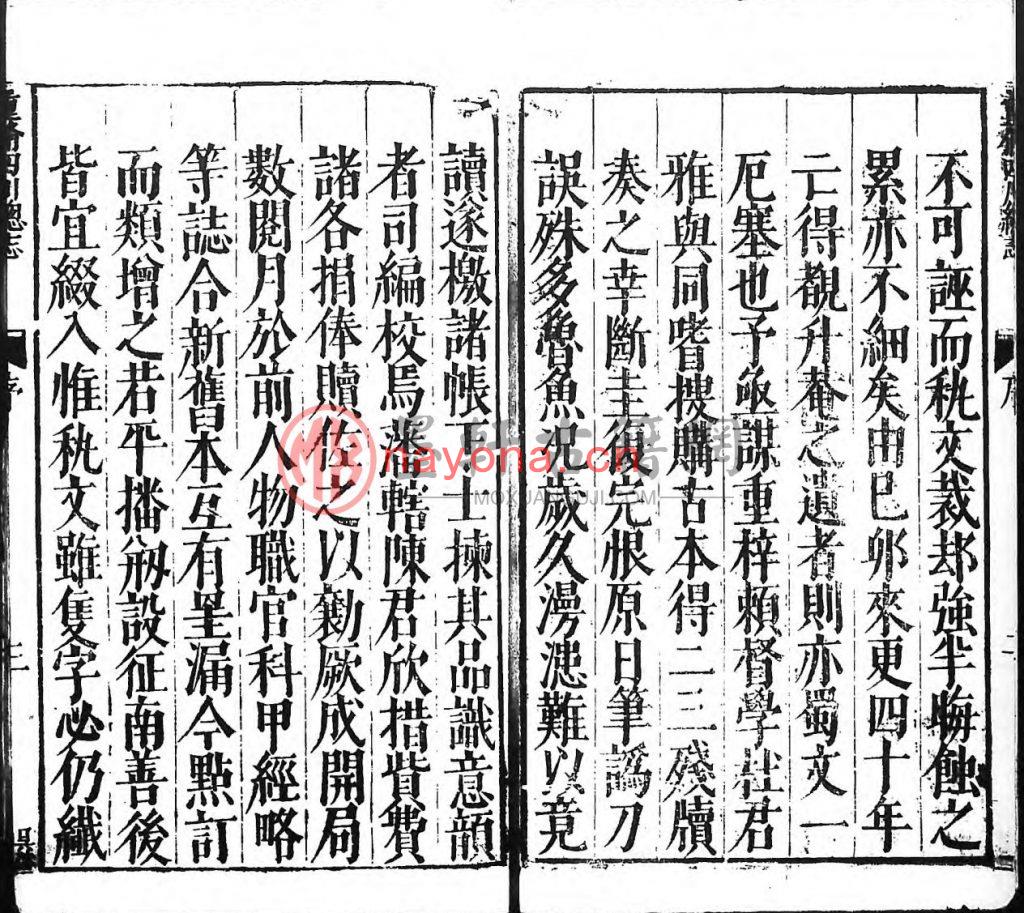 不可誣而秇文裁却強半晦蝕之
累亦不細矣由巳夘來更四十年
亡得覩升菴之遺者則亦蜀文一
厄塞也予亟謀重梓頼督學杜君
雅與同嗜搜購古本得二三殘牘
奏之幸斷圭復完恨原日筆譌刀
誤殊多魯魚况歲久漫漶難以竟
讀遂檄諸帳下士揀其品識意韻
者司編校焉潘轄陳君欣措貲費
諸各捐俸贖佐之以勷厥成開局
數閱月於前人物職官科甲經略
等誌合新舊本互有罣漏今點訂
而類增之若平播剏設征南善後
皆宜綴入惟秇文雖隻字必仍纖
重脩四川總志
序
三
nayona.cn
MOXUANGUJI.COM
墨軒古籍網